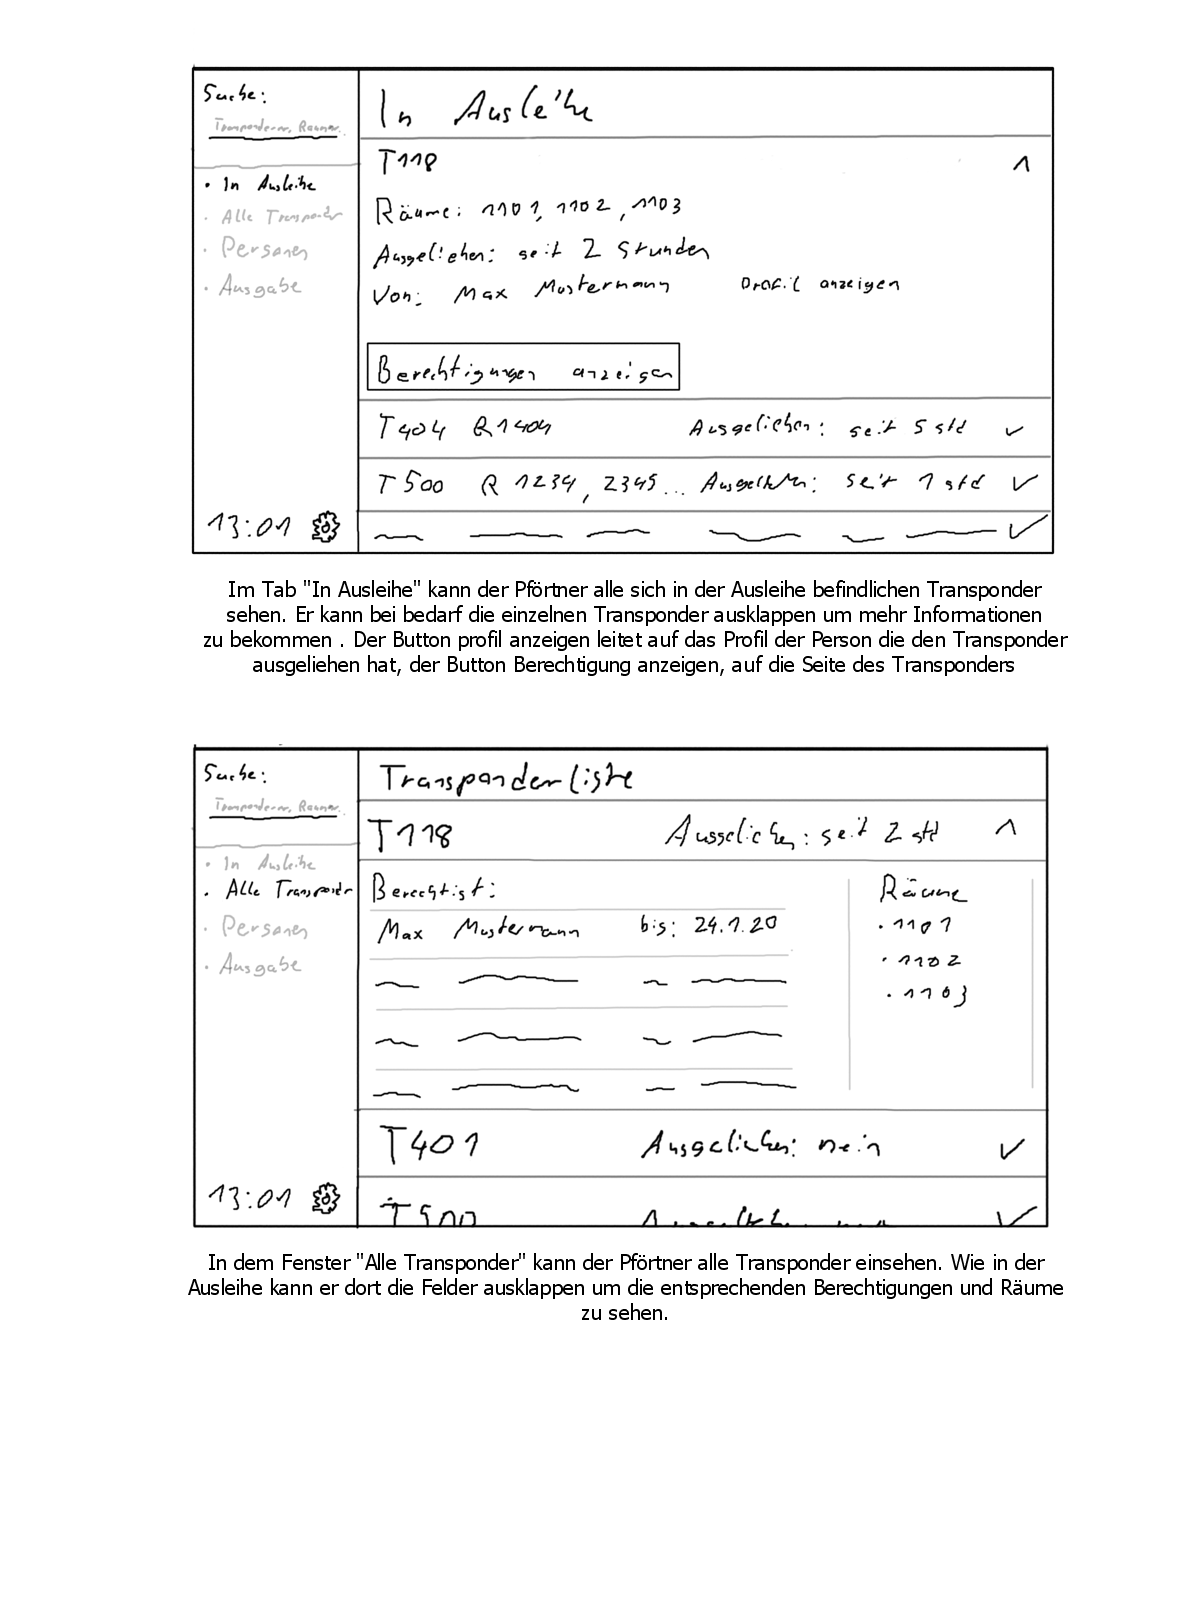 Suche:
Transpondernr, Raumnr.
• In Ausleihe
• Alle Transponder
• Personen
• Ausgabe
13:01
In Ausleihe
T118
Räume: 1101, 1102, 1103
Ausgeliehen: seit 2 Stunden
Von: Max Mustermann Profil anzeigen
Berechtigungen anzeigen
T404 R1404 Ausgeliehen: seit 5 std
T500 R 1234, 2345... Ausgeliehen: seit 1 std
Im Tab "In Ausleihe" kann der Pförtner alle sich in der Ausleihe befindlichen Transponder
sehen. Er kann bei bedarf die einzelnen Transponder ausklappen um mehr Informationen
zu bekommen . Der Button profil anzeigen leitet auf das Profil der Person die den Transponder
ausgeliehen hat, der Button Berechtigung anzeigen, auf die Seite des Transponders
Suche:
Transpondernr, Raumnr.
• In Ausleihe
• Alle Transponder
• Personen
• Ausgabe
13:01
Transponderliste
T118 Ausgeliehen: seit 2 std
Berechtigt:
Max Mustermann bis: 24.1.20
Räume
• 1101
• 1102
• 1103
T401 Ausgeliehen: nein
T500
In dem Fenster "Alle Transponder" kann der Pförtner alle Transponder einsehen. Wie in der
Ausleihe kann er dort die Felder ausklappen um die entsprechenden Berechtigungen und Räume
zu sehen.